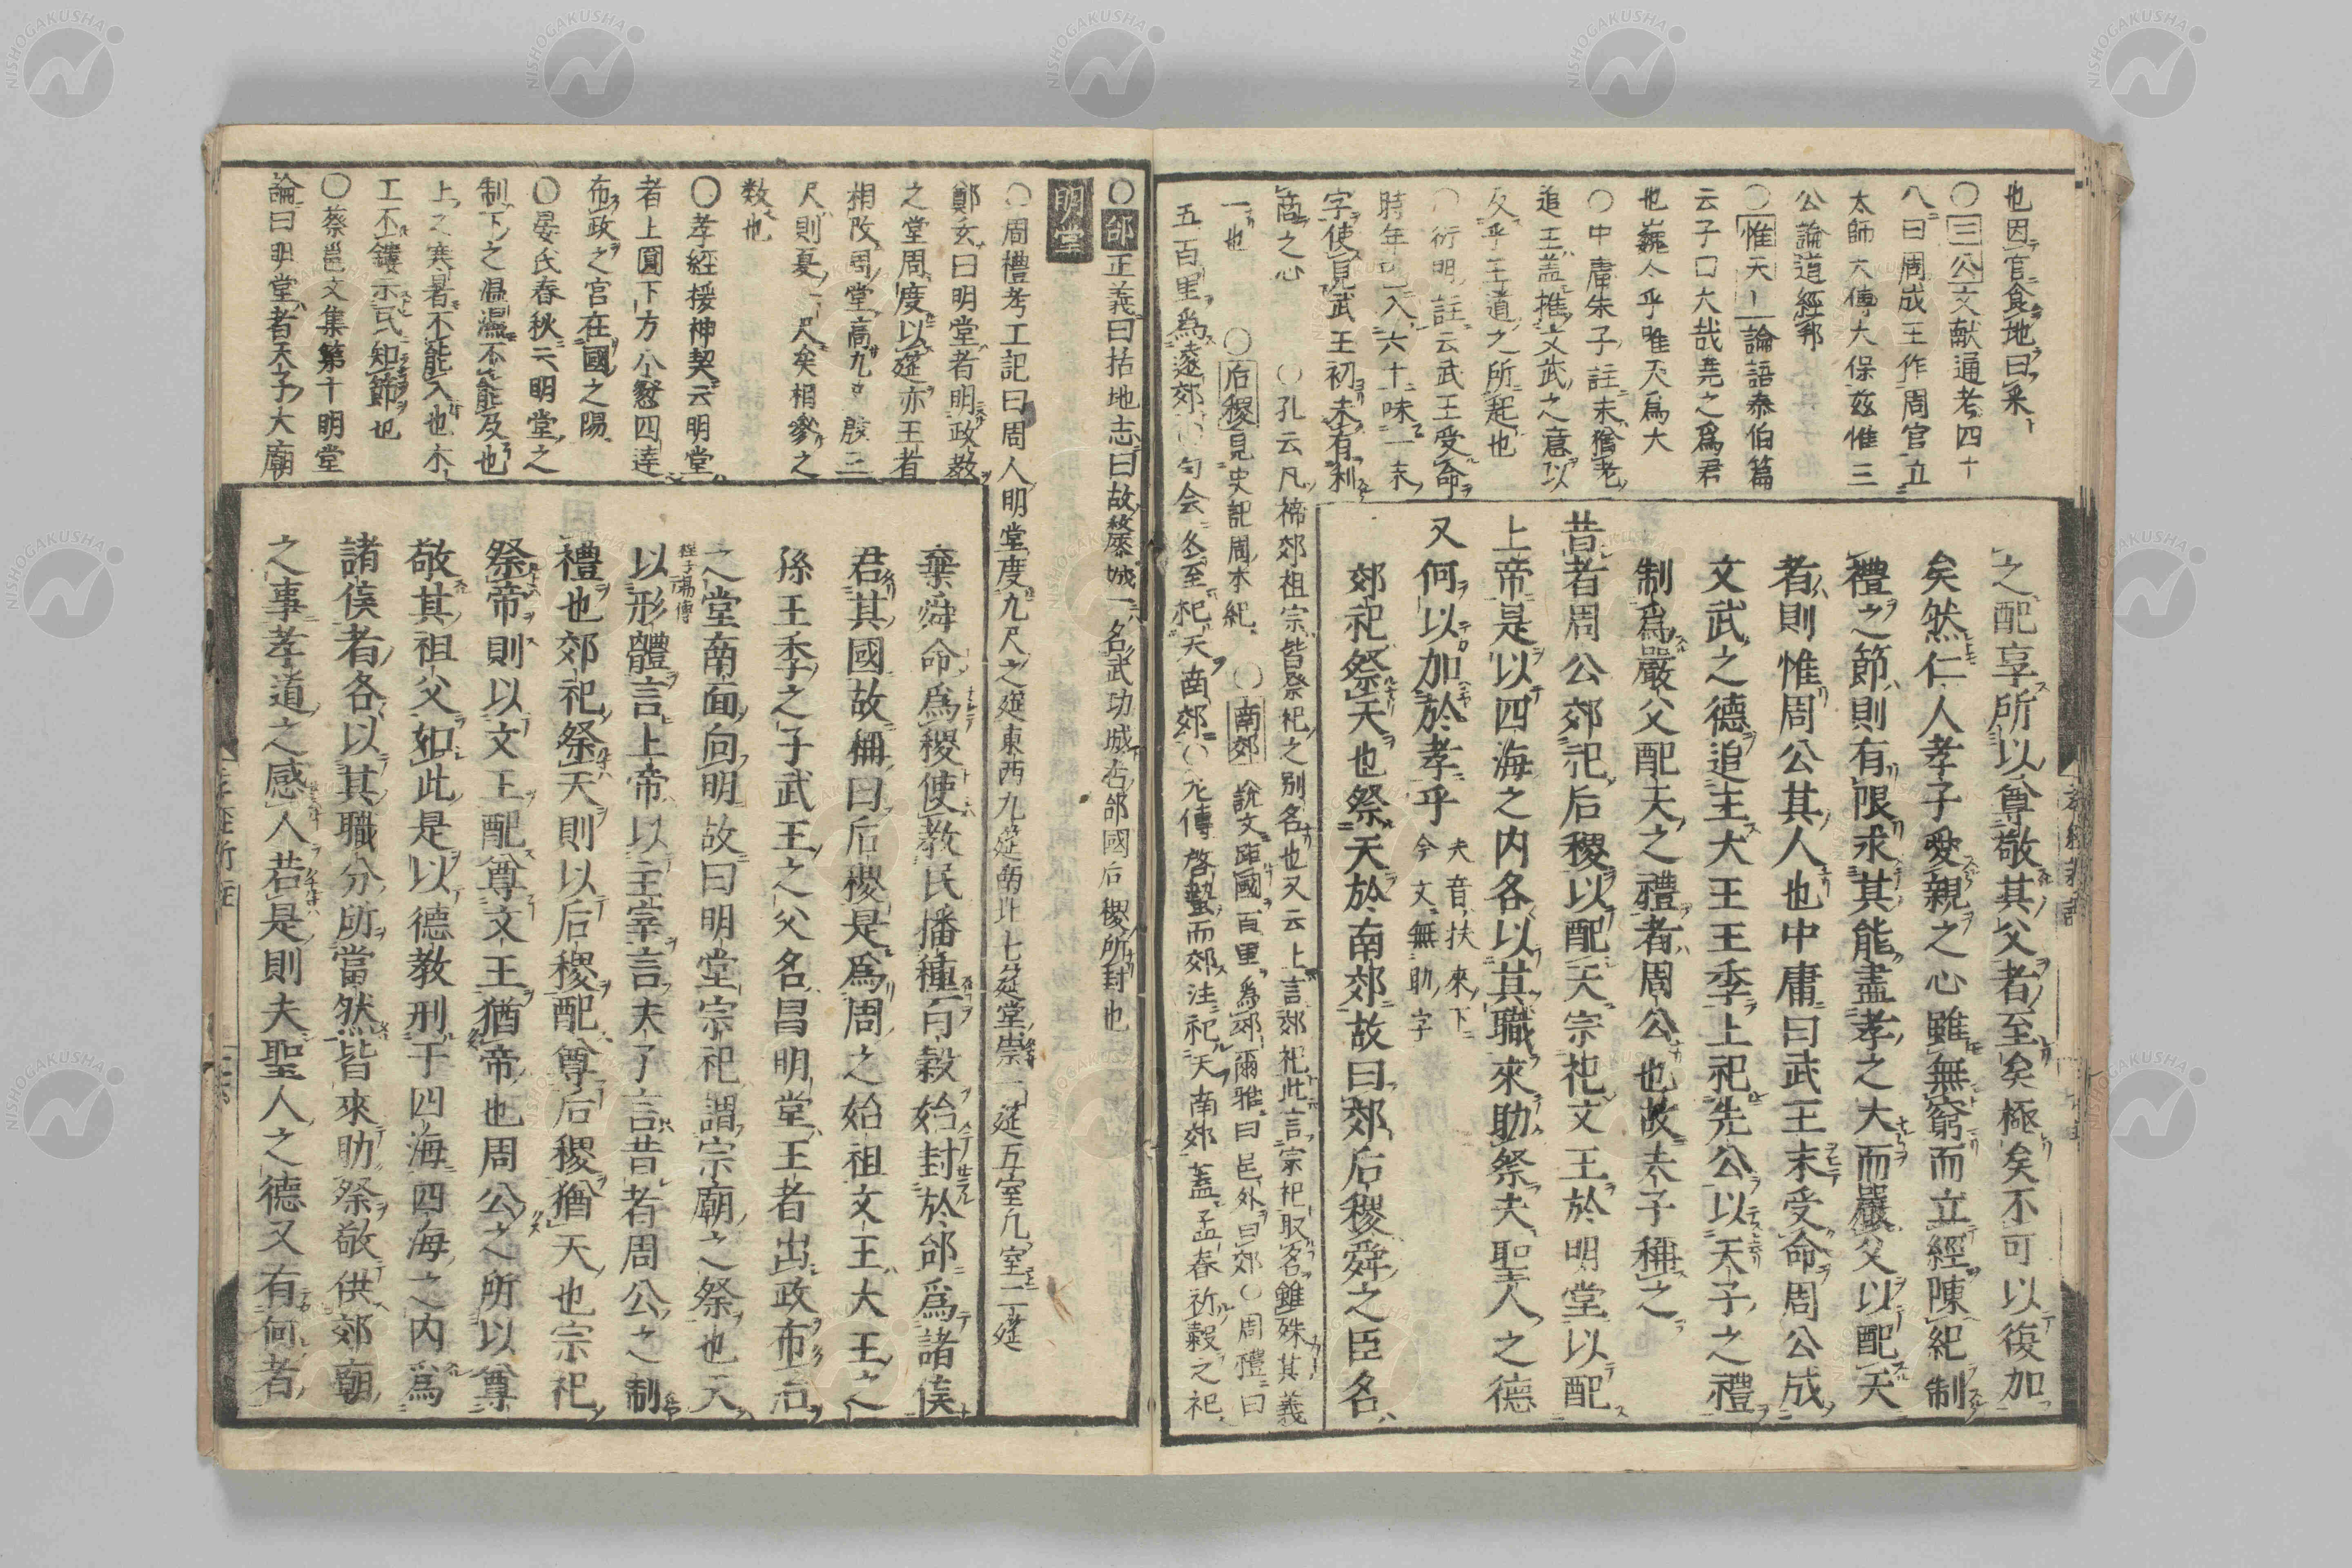 也因官食地曰采
○三公文献通考四十
八曰周成王作周官立
太師太傅大保兹惟三
公論道經邦
○惟天論語泰伯篇
云子曰大哉堯之爲君
也巍々乎唯天爲大
○中庸朱子註末猶老
追王蓋推文武之意以
及乎王道之所起也
○衍明註云武王受命
時年已入六十味一末
字使見武王初未有利
商之心
之配享所以尊敬其父者至矣極矣不可以復加
矣然仁人孝子愛親之心雖無窮而立經陳紀制
禮之節則有限求其能盡孝之大而嚴父以配天
者則惟周公其人也中庸曰武王末受命周公成
文武之德追王大王王季上祀先公以天子之禮
制爲嚴父配天之禮者周公也故夫子稱之
昔者周公郊祀后稷以配天宗祀文王於明堂以配
上帝是以四海之内各以其職來助祭夫聖人之德
又何以加於孝乎
夫音扶來下
今文無助字
郊祀祭天也祭天於南郊故曰郊后稷舜之臣名
○孔云凡禘郊祖宗皆祭祀之別名也又云上言郊祀此言宗祀取名雖殊其義
一也 ○后稷見史記周本紀 ○南郊 説文距國百里爲郊爾雅曰邑外曰郊○周禮曰
五百里爲遠郊○句会冬至祀天南郊○左傳啓蟄而郊注祀天南郊蓋孟春祈穀之祀
○邰正義曰括地志曰故斄城一名武功城古邰國后稷所封也
明堂
○周禮考工記曰周人明堂度九尺之筵東西九筵南北七筵堂崇一筵五室凡室二筵
鄭玄曰明堂者明政教
之堂周度以筵亦王者
相改周堂高九尺殷三
尺則夏一尺矣相參之
数也
○孝經援神契云明堂
者上圓下方八窓四達
布政之宮在國之陽
○晏氏春秋云明堂之
制下之温濕不能及也
上之寒暑不能入也木
工不鏤示民知節也
○蔡邕文集第十明堂
論曰明堂者天子大廟
棄舜命爲稷使教民播種百穀始封於邰爲諸侯
君其國故稱曰后稷是爲周之始祖文王大王之
孫王季之子武王之父名昌明堂王者出政布治
之堂南面向明故曰明堂宗祀謂宗廟之祭也天
程子易傳
以形體言上帝以主宰言夫子言昔者周公之制
禮也郊祀祭天則以后稷配尊后稷猶天也宗祀
祭帝則以文王配尊文王猶帝也周公之所以尊
敬其祖父如此是以德教刑于四海四海之内爲
諸侯者各以其職分所當然皆來助祭敬供郊廟
之事孝道之感人若是則夫聖人之德又有何者